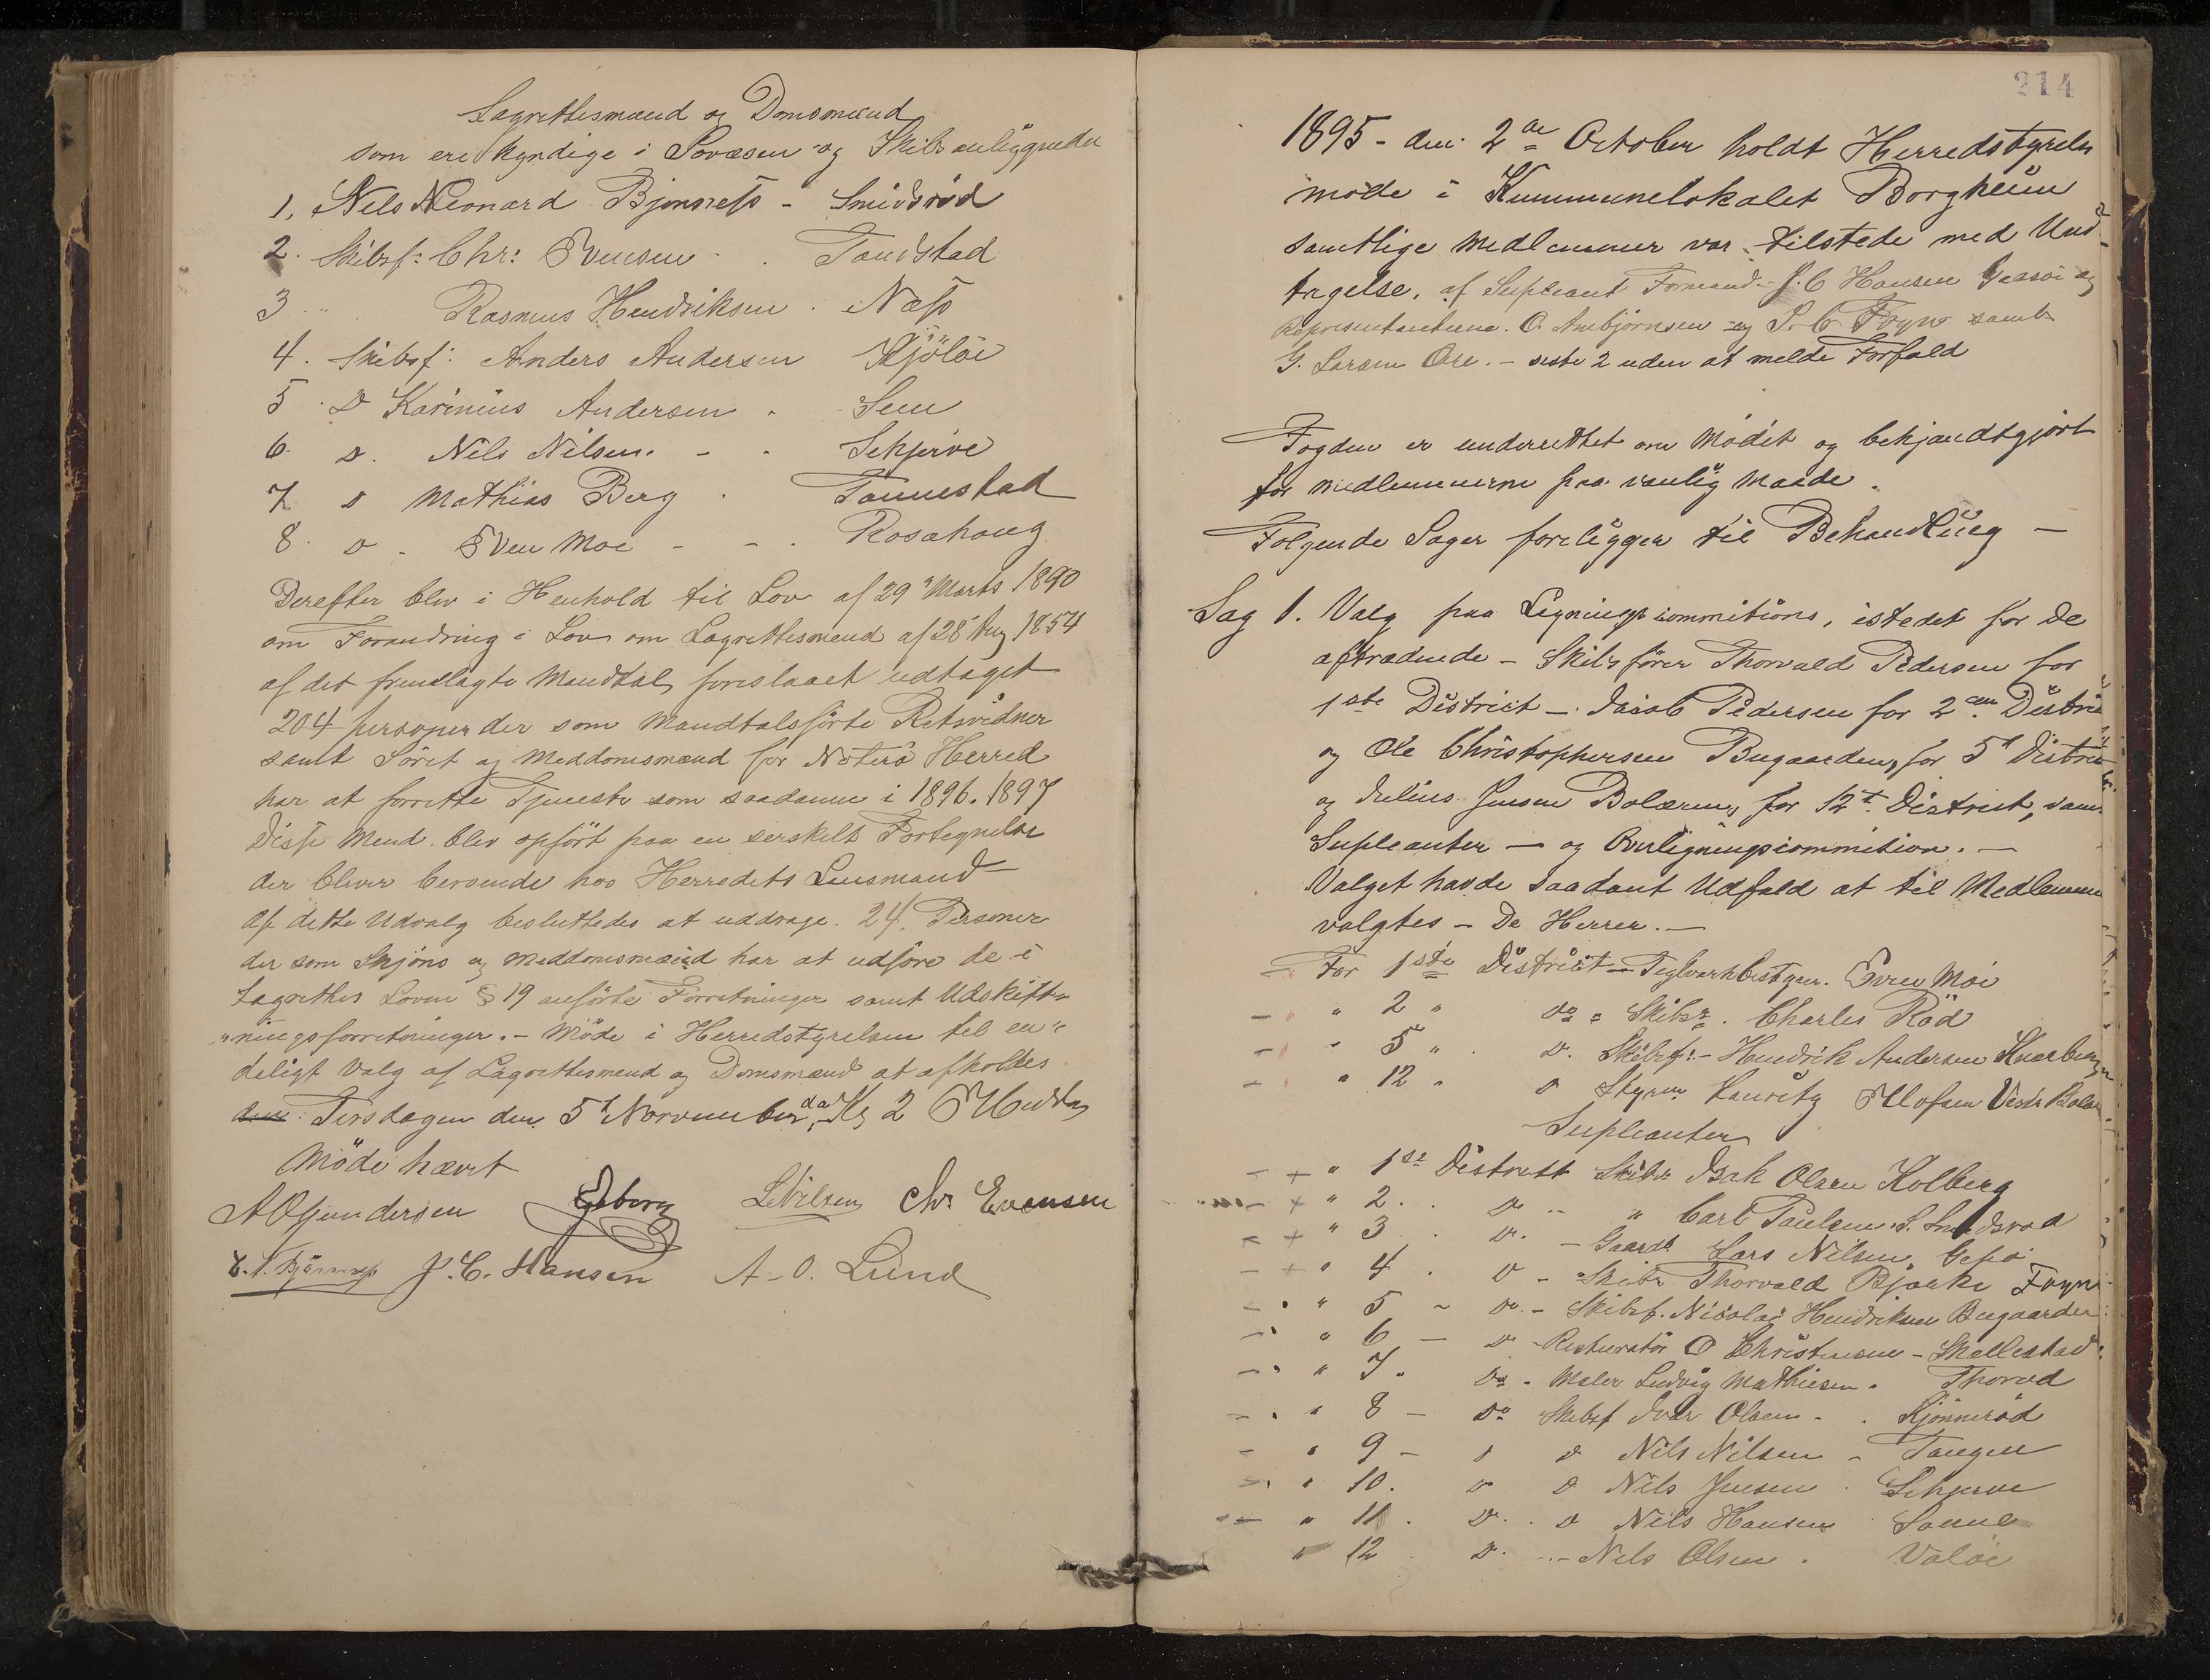 Lagrettesmænd og Domsmænd
som ere kyndige i Sovæsen og Skibsanliggender
1. Nils Neonard Bjønness - Smidsröd
2. Skibsf: Chr: Evensen - Tandstad
3 " Rasmus Hendriksen . Næss
4. Skibsf: Anders Andersen Kjölöe
5 Do Karinius Andersen - Sem
6. Do. Nils Nilsen. - - Sekjerve
7 Do Mathias Berg . Tannestad
8. Do - Even Moe - - . Rosahaug
Derefter blev i Henhold til Lov af 29 Marts 1890
om Forandring i Lov om Lagrettesmend af 28 Aug 1854
af det fremlagte Mandtal foreslaaet udtaget
204 personer der som Mandtalsförte Retsvidner
samt Söret og Meddomsmænd for Nöterö Herred
har at forrette Tjeneste som saadanne i 1896. 1897
Disse Mend. blev opfört paa en serskelt Fortegnelse
der bliver beroende hos Herredets Lensmand
Af dette Udvalg besluttedes at uddrage. 24. Personer
der som Skjöns og Meddomsmænd har at udföre de i
Lagrettes Loven § 19 anförte Forretninger samt Udskift=
"ningsforretninger. - Möde i Herredstyrelsen til en"
deligt Valg af Lagrettesmend og Domsmænd at afholdes
Tirsdagen den 5t Novvember da Kl 2 EMiddag
Möde hævet
A O Gundersen Esborg L Nilsen Chr Evensen
E. N. Bjönness J. C. Hansen A. O. Lund
214
1895 - den 2de October holdt Herredstyrelsen
möde i Kummunelokalet Borgheim
samtlige Medlemmer var tilstede med Und=
tagelse, af Supleant Formand J. C Hansen Gassöe og
Representanterne. O. Ambjörnsen og P. C. Foyn samt
G. Larsen Oee. - siste 2 uden at melde Forfald
Fogden er underrettet om Mödet og bekjandtgjort
for medlemmerne paa vanlig Maade.
Folgende Sager foreligger til Behandling -
Sag 1. Valg paa Ligningscommitions, istedet for de
aftrædende - Skibsförer Thorvald Pedersen for
1ste District - Jacob Pedersen for 2den Distric
og Ole Christophersen Bugaarden, for 5t Distric
og Julius Jensen Bolærne, for 12t District, sam.
Supleanter - og Overligningscommition. -
Valget havde saadant Udfald at til Medlemmer
valgtes - De Herrer. -
For 1ste District - Teglværkbestyrer. Even Moe
- " 2 " Do " Skibsr. Charles Röd
- " 5 " . D. Skibsf: - Hendrik Andersen Knarberg
- " 12 " D Styrm Lauritz Ellofsen Vestr Bolær
Supleanter
- + " 1ste District Skibsr Isak Olsen Kolberg
- + " 2 . . D .. " Carl Paulsen S. Smidsröd
- + " 3 . D. - Gaardb Lars Nilsen Gipö
- + " 4 . D - Skibr Thorvald Bjærke Foyn
- " 5 - Do - Skibsf. Nicolai Hendriksen Bugaarden
- " 6 - D - Resturatör O Christensen - Skallestad
- " 7 . Do - Maler Ludvig Mathiesen . Thorød
- " 8 - Do Skibsf Ivar Olsen - . Kjönneröd
- " 9 - D D Nils Nilsen - Tangen
- " 10. D D Nils Jensen . Sekjerve
- " 11 . D. D Nils Hansen Sande
" 12 . D. - Nils Olsen . Valöe